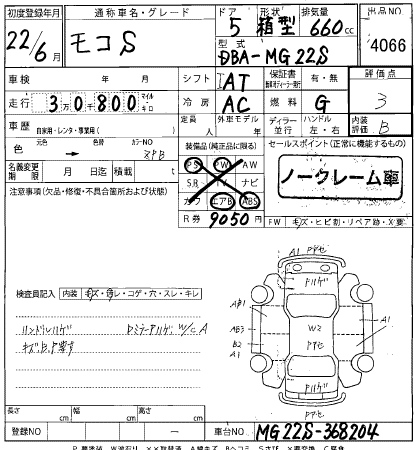 初度登録年月 通称車名・グレード ドア 形状 排気量 出品NO
22/6月 モコS 5 箱型 660cc 4066
型式
DBA-MG22S
車検 年 月 シフト AT 保証書 有・無 評価点
走行 3万0千800 マイル キロ 冷房 AC 燃料 G 3
車歴 自家用・レンタ・事業用( ) 定員 人 外車モデル 年 ディラー 並行 ハンドル 左・右 内装評価 B
色 元色 → 色替 カラーNO ZPB
装備品(純正品に限る) セールスポイント(正常に機能するもの)
名義変更期限 月 日迄 積載 t
PS PW AW
SR TV ナビ
カワ エアB ABS
ノークレーム車
注意事項(欠品・修復・不具合箇所および状態)
R券 9050円
FW キズ・ヒビ割・リペア跡・X要
検査員記入 内装 キズ・汚レ・コゲ・穴・スレ・キレ
ハンドルハゲ Dミラーアハゲ W/C A
A1 Pアセ
ハゲ
AB1
AB3
B2
A1
W2
Pアセ
A1
ハゲ
Pアセ
長さ cm 幅 cm 高さ cm
登録NO 車台NO MG22S-368204